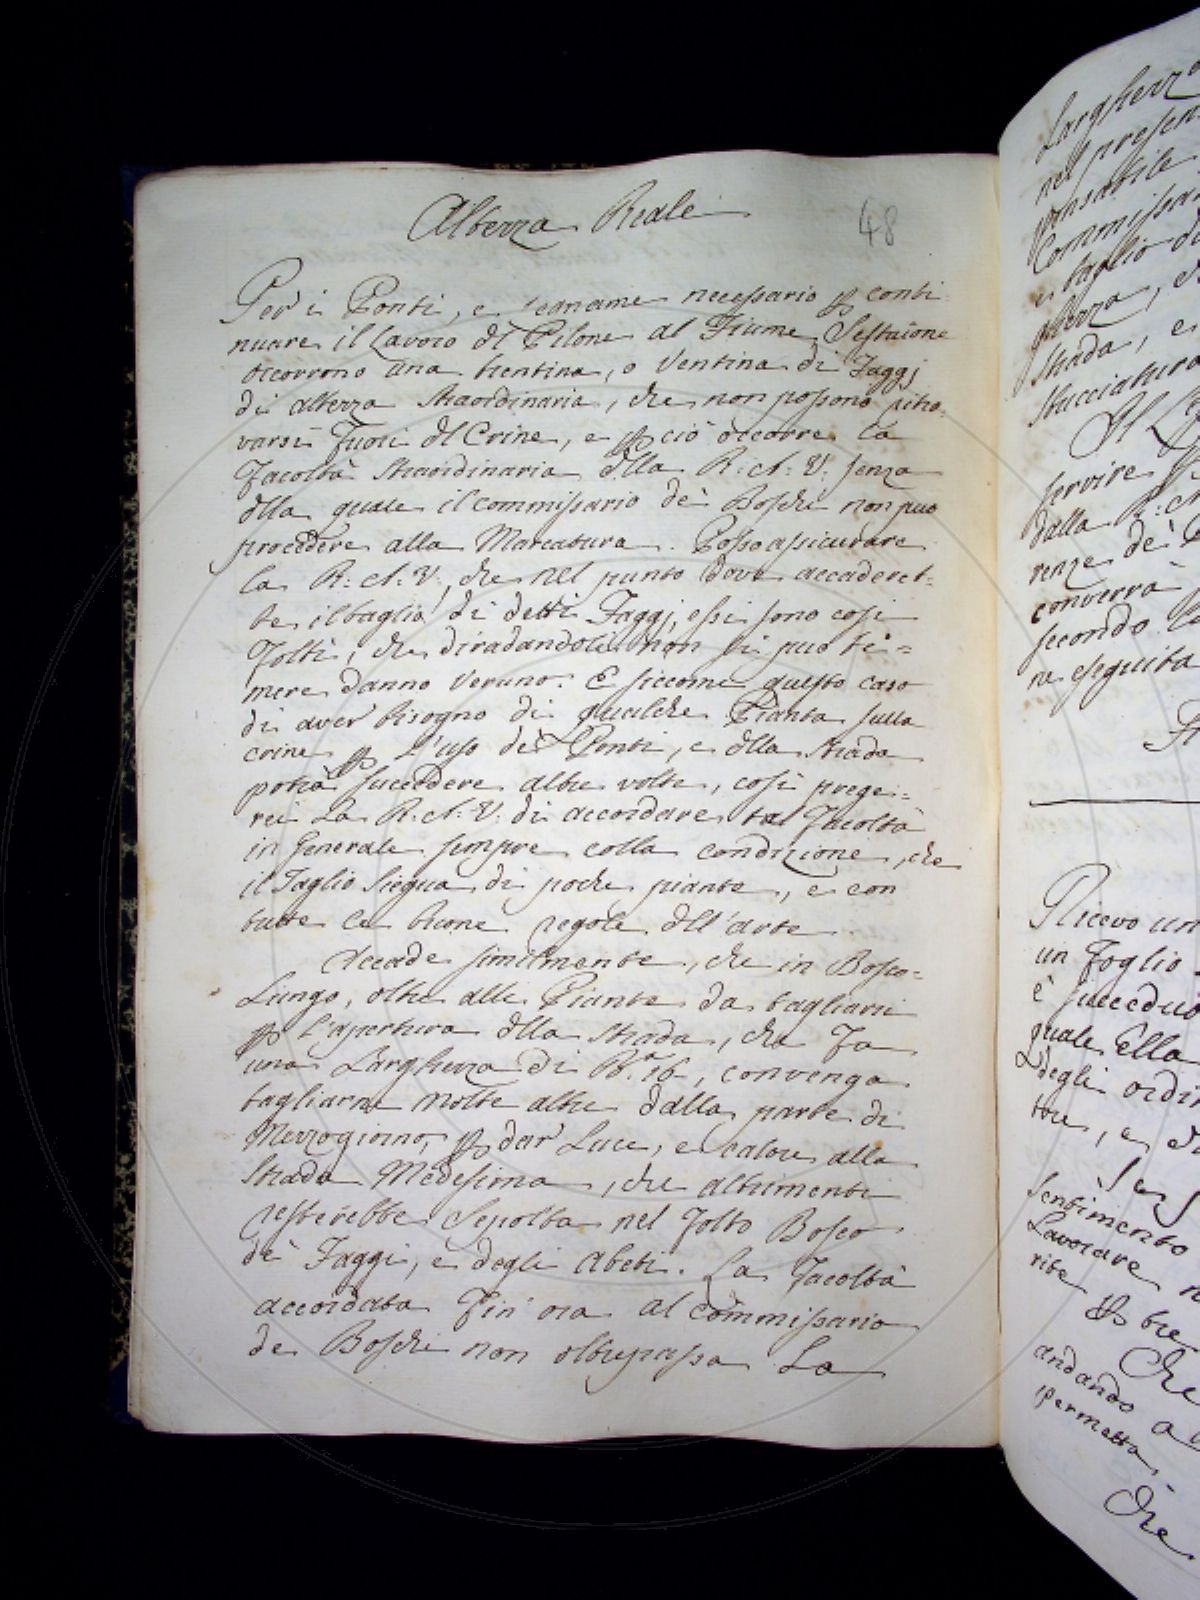 Altezza Reale
48
Per i Ponti, e legname necessario p conti
nuare il Lavoro dl Pilone al Fiume Sestaione
occorrono una trentina, o ventina di Faggj
di altezza straordinaria, che non possono ritro-
varsi fuori dl Crine, e p ciò occorre la
Facoltà straordinaria dlla R: A: V: senza
dlla quale il Commissario dei Boschi non puo
procedere alla Marcatura. Posso assicurare
la R: A: V:, che nel punto dove accaderet-
te il taglio di detti Faggj, essi sono cosi
folti, che diradandoli non si puo te=
mere danno veruno. E siccome questo caso
di aver bisogno di qualche Pianta sulla
crine p l'uso dei Ponti, e dlla strada
potrà succedere altre volte, così prege=
rei La R: A: V: di accordare tal Facoltà
in Generale sempre colla condizione, che
il Taglio siegua di poche piante, e con
tutte le buone regole dll'arte.
Accade similmente, che in Bosco=
Lungo, oltre alle Piante da tagliarsi
p l'apertura dlla strada, che fa
una Larghezza di Ba 16, convenga
tagliarne molte altre dalla parte di
Mezzogiorno, p dar Luce, e calore alla
Strada Medesima, che altrimenti
resterebbe Sepolta nel folto Bosco
dei Faggi, e degli Abeti. La Facoltà
accordata fin'ora al Commissario
de Boschi non oltrepassa La
Larghezza
nel presen
pansabile
Commissar
e taglio di
strada, e
stucciatura
servire
dalla R: A
renze de'
converrà
secondo
ne eseguita
Ricevo un
un foglio
è succeduto
quale Ella
degli ordin
tore, e
sentimento
Lavorare
rite
p tre
Che
andando a
permetta
Che